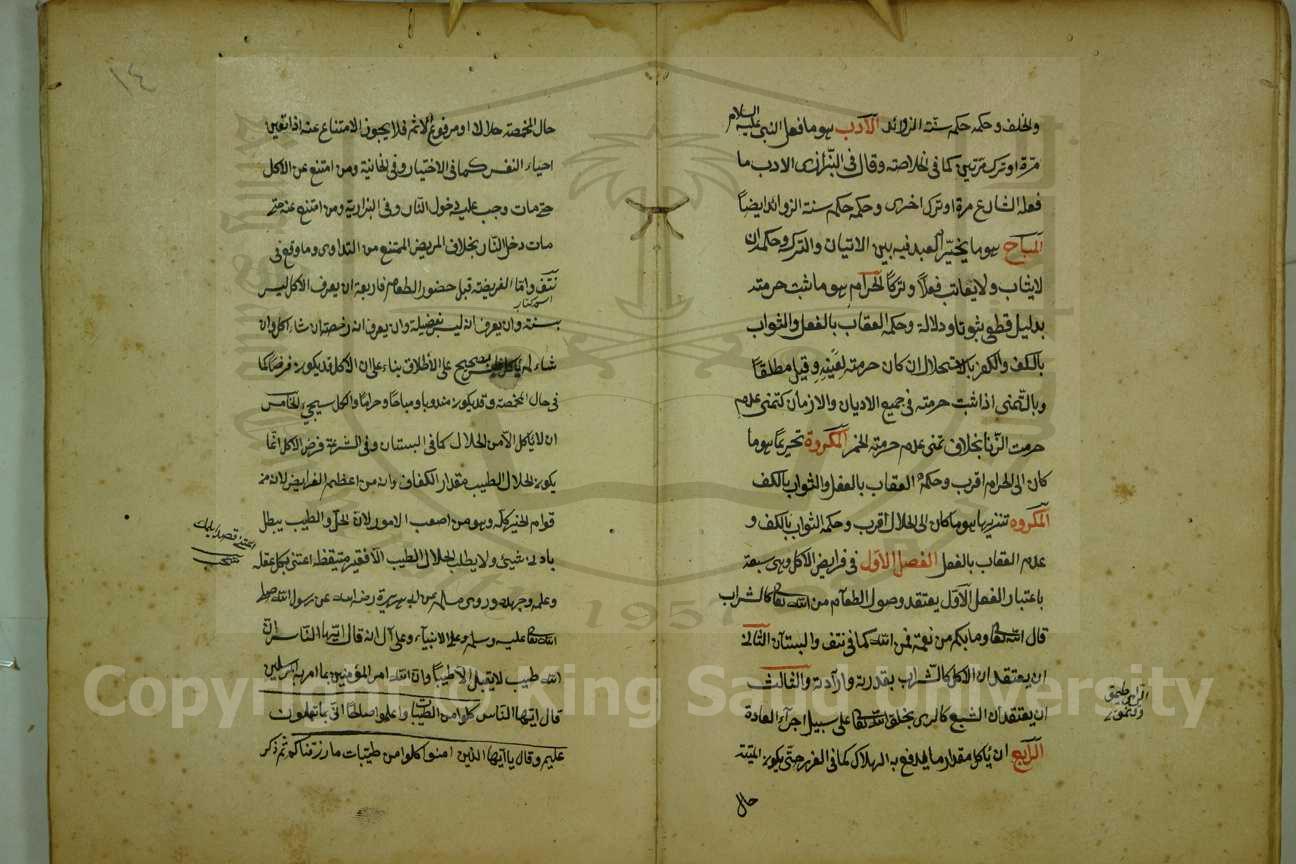 والخلف وحكمه حكم سنة الزوائد الأدب هو ما فعل النبى عليه السلام
مرة او ترك مرتين كما فى الخلاصة وقال فى البزازى الادب ما
فعله الشارع مرة او ترك اخرى وحكمه حكم سنة الزوائد ايضا
المباح هو ما يخير العبد فيه بين الاتيان والترك وحكمه ان
لا يثاب ولا يعاقب فعلا وتركا الحرام هو ما ثبت حرمته
بدليل قطعى ثبوتا ودلالة وحكمه العقاب بالفعل والثواب
بالكف والكفر بالاستحلال ان كان حرمته لعينه وقيل مطلقا
وبالتمنى اذا ثبت حرمته فى جميع الاديان والازمان كتمنى عدم
حرمت الزنا بخلاف تمنى عدم حرمته الخمر المكروه تحريما هو ما
كان الى الحرام اقرب وحكمه العقاب بالفعل والثواب بالكف
المكروه تنزيها هو ما كان الى الحلال اقرب وحكمه الثواب بالكف و
عدم العقاب بالفعل الفصل الاول فى فرايض الاكل وهى سبعة
باعتبار الفعل الاول يعتقد وصول الطعام من الله تعالى كالشراب
قال الله تعالى وما بكم من نعمة فمن الله كما فى نتف والبستان الثانى
ان يعتقد ان الاكل كالشراب بقدرته وارادته والثالث
ان يعتقد ان الشبع كالرى بخلق الله تعالى على سبيل اجراء العادة
الرابع ان يأكل مقدار ما يدفع به الهلاك كما فى الغرر حتى يكون الميتة
حال
١٤
حال المخمصة حلالا او مرفوع الاثم فلا يجوز الامتناع عنه اذا تعين
احياء النفس كما فى الاختيار وفى الخانية ومن امتنع عن الاكل
حتى مات وجب عليه دخول النار وفى البزازية ومن امتنع عنه حتى
مات دخل النار بخلاف المريض الممتنع من التداوى وما وقع فى
نتف واما الفريضة قبل حضور الطعام فاربعة ان يعرف الاكل ليس
اسم كتاب
بسنة وان يعرف انه ليس بفضيلة وان يعرف انه رخصة ان شاء اكل وان
شاء لم يأكل فليس بصحيح على الأطلاق بناء على ان الاكل قد يكون فرضا كما
فى حال المخمصة وقد يكون مندوبا ومباحا وحراما والكل سيجئ الخامس
ان لا يأكل الا من الحلال كما فى البستان وفى الشرعة فرض الاكل انما
يكون الحلال الطيب مقدار الكفاف وانه من اعظم الفرايض لان منه
قوام الخير كله وهو من اصعب الامور لان الحل والطيب يبطل
بادنى شئ ولا يطلب الحلال الطيب الا فقير متيقظ اعتنى بكل عقله
وعلمه وجهده وروى مسلم عن ابى هريرة رضى الله عن رسول الله صلى
الله تعالى عليه وسلم وعلى الانبياء وعلى آل انه قال ايها الناس ان
الله طيب لا يقبل الا طيبا وان الله امر المؤمنين بما امر به المرسلين
قال ايها الناس كلوا من الطيبات واعملوا صالحا انى بما تعملون
عليم وقال يا ايها الذين امنوا كلوا من طيبات ما رزقناكم ثم ذكر
1957
Copyright © King Saud University